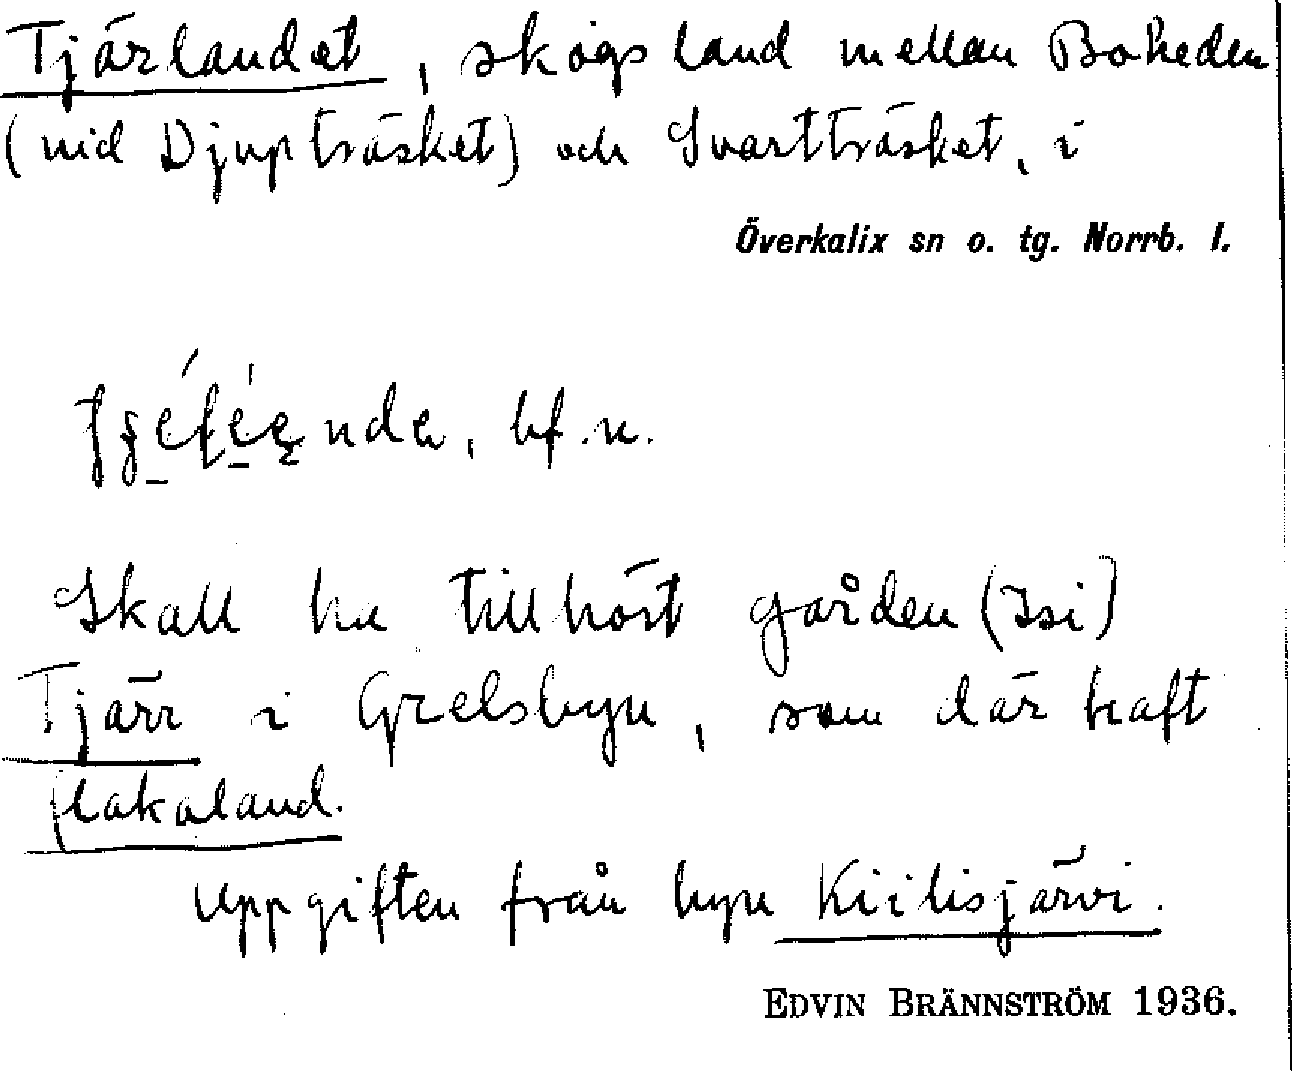 Tjärlandet, skogsland mellan Boheden
(vid Djupträsket) och Svartträsket, i
Överkalix sn o. tg. Norrb. l.
bf. n.
Skall ha tillhört gården (Isi)
Tjärr i Grelsbyn, som där haft
flakaland.
Uppgiften från byn Kiilisjärvi.
EDVIN BRÄNNSTRÖM 1936.